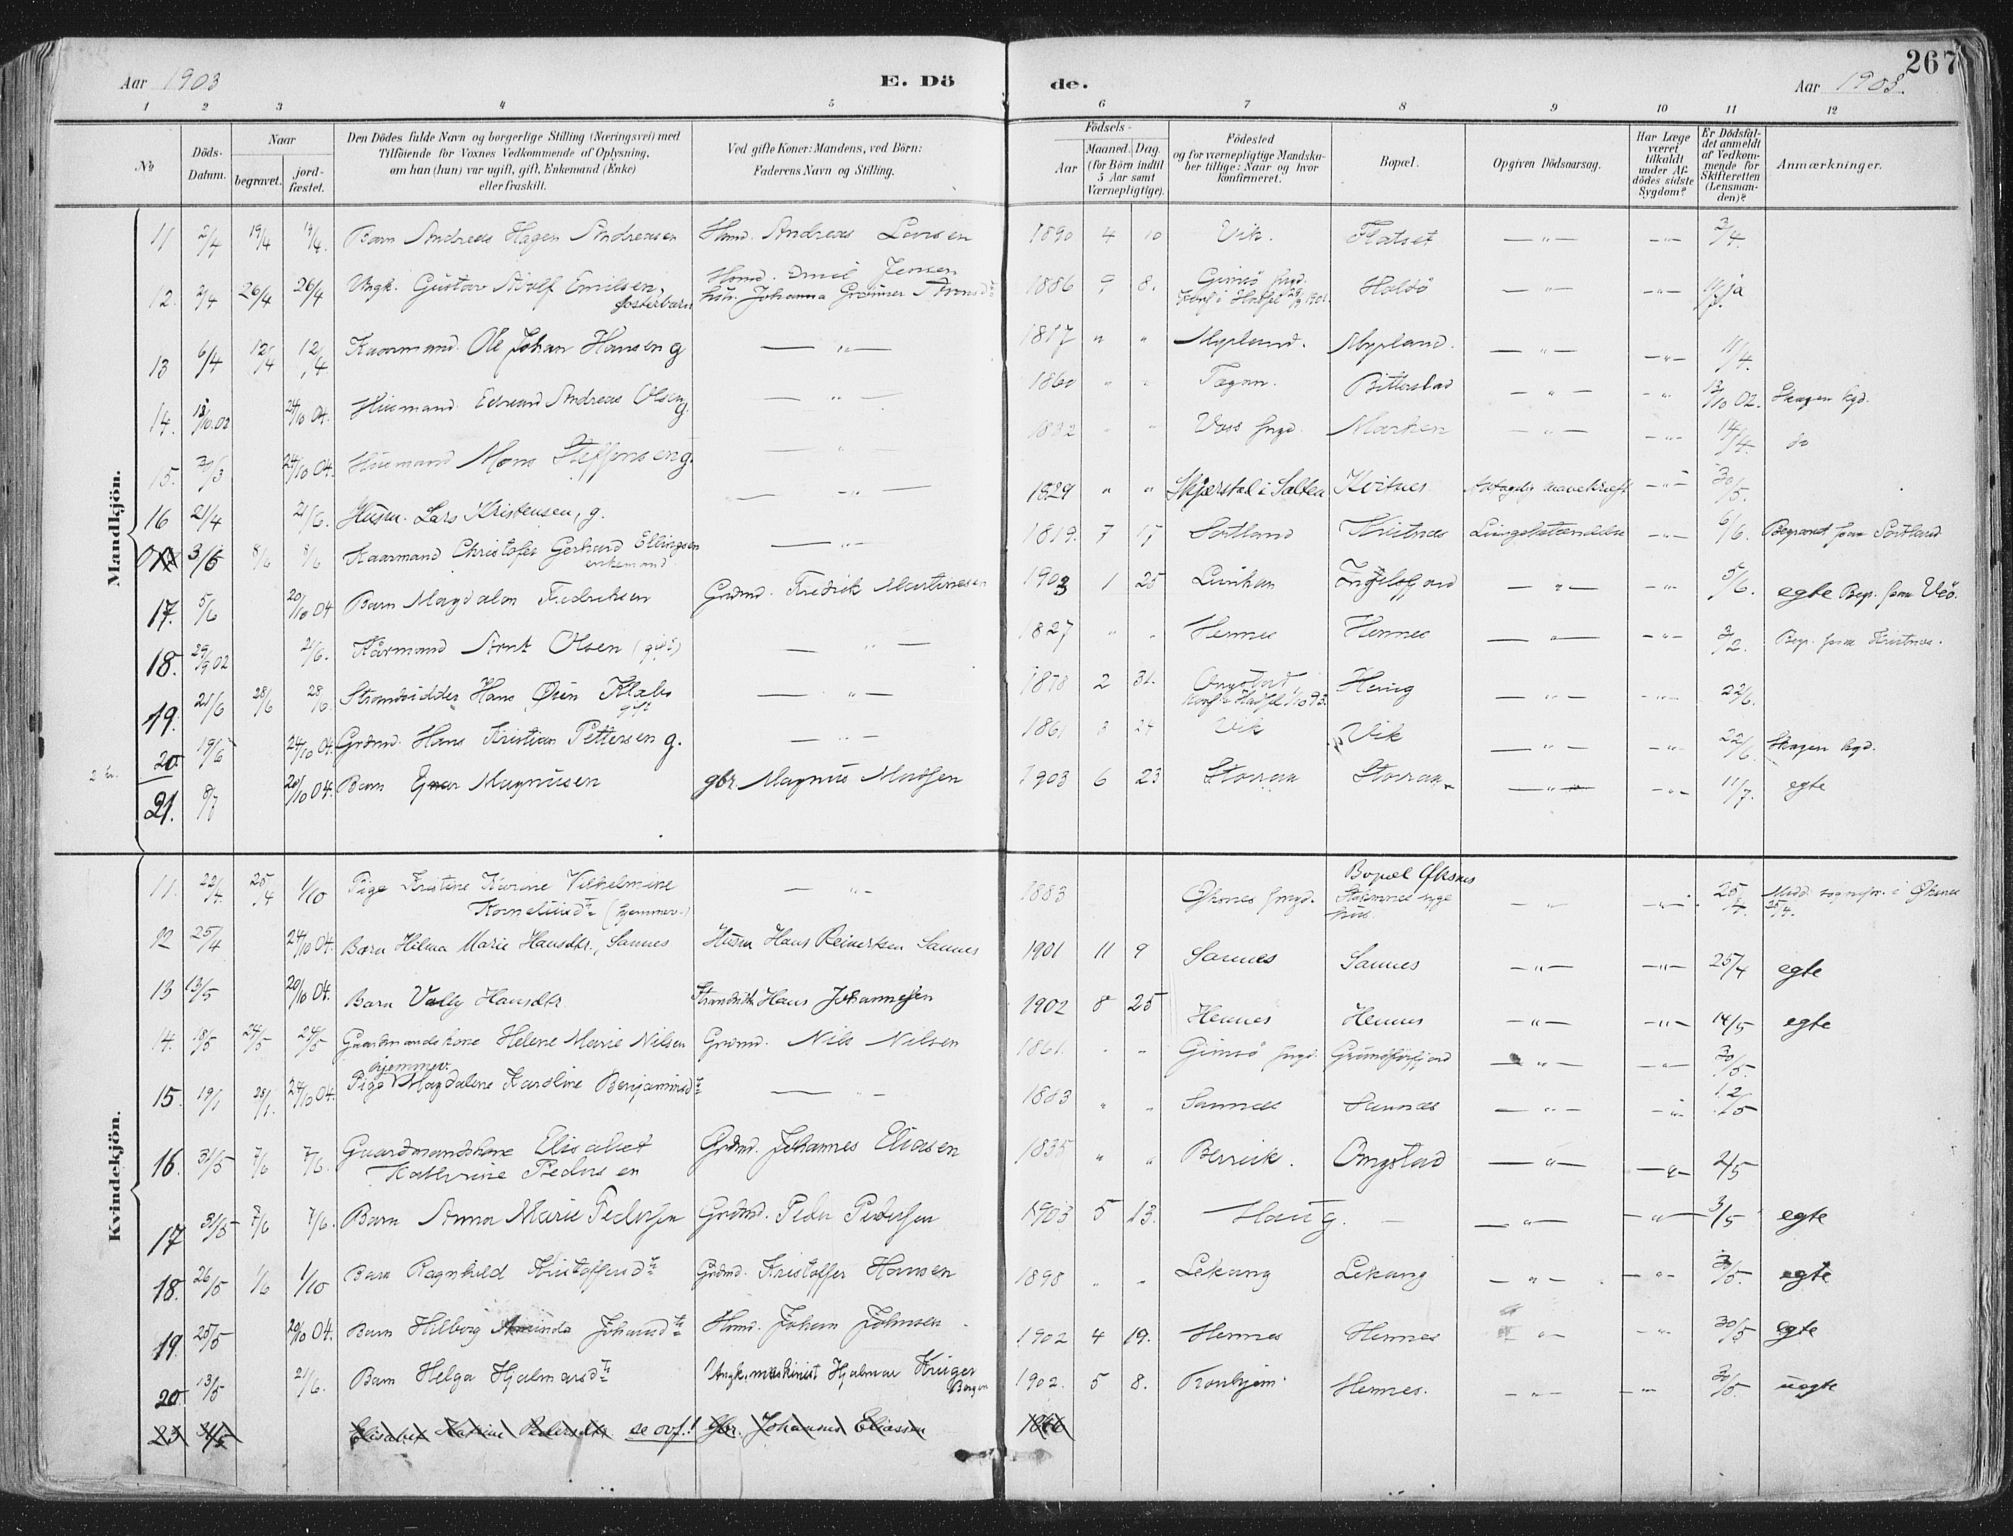 267
Aar 1903 E. Dö de. Aar 1903.
1 2 3 4 5 6 7 8 9 10 11 12
No Döds-Datum. Naar begravet. jord-fæstet. Den Dödes fulde Navn og borgerlige Stilling (Næringsvei) med Tilföiende for Voxnes Vedkommende af Oplysning, om han (hun) var ugift, gift, Enkemand (Enke) eller fraskilt. Ved gifte Koner: Mandens, ved Börn: Faderens Navn og Stilling. Födsels- Aar Maaned. Dag. (for Börn indtil 5 Aar samt Værnepligtige). Födested og for værnepligtige Mandska-ber tillige: Naar og hvor konfirmeret. Bopæl. Opgiven Dödsaarsag. Har Læge været tilkaldt under Af-dödes sidste Sygdom? Er Dödsfal-det anmeldt af Vedkom-mende for Skifteretten (Lensman-den)? Anmærkninger.
Mandkjön.
11 2/4 19/4 19/4. Barn Andreas Hagen Andreasen Hmd. Andreas Larsen 1890 4 10 Vik. Flatset — " — - " - 3/4.
12. 2/4 26/4 26/4 Ungk. Gustav Adolf Emilsen, fosterbarn Hmd. Emil Jensen 1886 9 8. Gimsö Holdö — " — - " - ja
13 6/4 12/4 12/4 Kaarmand. Ole Johan Hansen g — " — 1817 " " Mypland. Mypland. — " — - " - 11/4.
14. 12/10.02 24/10 04. Husmand Edvard Andreas Olsen g. — " — 1860 " " Bitterstad — " — - " - 13/10 02. Skagen kgd.
15. 30/3 24/10 04. Husmand Mons Steffensen g. — " — 1822 " " Voss Marken — " — - " - 14/4. do
16 21/4 21/6. Husm. Lars Kristensen, g. — " — 1829 " " Skjerstad i Salten Kvitnes — " — 30/5.
3/5 8/6 8/6 Kaarmand Christofer Gerhard Ellingsen enkemand — " — 1819. 7 17 Sortland Kvitnes Lungebetændelse - " - 6/6. Begravet paa Sortland
17. 5/6 20/10 04 Barn Magdalon Fredriksen Grdmd. Fredrik Martinesen 1903 1 25 Ingelsfjord — " — - " - 5/6. egte
18. 29/9 02 2/6. Kårmand Arnt Olsen (gift) — " — 1827 " " Hennes Hennes — " — - " - 3/2.
19. 21/6 28/6 28/6. Strandsidder Hans Klabo gift — " — 1878 2 31. Ongstad Haug — " — - " - 22/6.
20 19/6 24/10 04. Grdmd. Hans Kristian Pettersen g. — " — 1861 3 24 Vik Vik — " — - " - 22/6. Skagen kgd.
21. 8/7 20/10 04. Barn Einar Magnussen gbr. Magnus Madsen 1903 6 23 Storraa Storraa — " — - " - 11/7. egte
Kvindekjön.
11. 22/4 25/4 1/10 Pige Kristine Karine Vilhelmine Korneliusdtr (hjemmev.) — " — 1883 Øksnes Bopæl Øksnes — " — - " - 25/4. Øksnes
12 25/4 24/10 04. Barn Hilma Marie Hansdtr., Sannes Husm Hans Reinertsen Sannes 1901 11 9 Sannes Sannes — " — - " - 25/4 egte
13 13/5 20/10 04. Barn Vally Hansdtr. Strandsid. Hans Johannesen 1902 8 25 Hennes Hennes — " — - " - 14/5 egte
14. 18/5 24/5 24/5 Gaardmandskone Helene Marie Nilsen Grdmd. Nils Nilsen 1861. " " Gimsö Grundforfjord — " — - " - 20/5.
15. 19/1 28/1. 24/10 04. Pige hjemmev. Magdalene Karoline Benjaminsdtr — " — 1883 " " Sannes Sannes — " — - " - 12/5
16. 31/5 7/6 7/6. Gaardmandskone Elisabet Kathrine Pedersen Grdmd. Johannes Eliasen 1835 " " Ongstad — " — - " - 2/5
17 31/5 7/6 7/6. Barn Anna Marie Pedersen Grdmd. Peder Pedersen 1903 5 13. Haug. — " — - " - 3/5 egte
18. 26/5 1/6 1/10 Barn Ragnhild Kristoffersdtr Grdmd. Kristoffer Hansen 1898 " " Lekang Lekang — " — - " - 3/5. egte
19. 25/5 20/10 04. Barn Hilborg Johansdtr Hmd. Johan Johnsen 1902 4 19. Hennes Hennes — " — - " - 30/5 egte
20 13/5 21/6. Barn Helga Hjalmarsdtr Ungk. maskinist Hjalmar Krüger Bergen 1902. 5 8. Tronhjem Hennes. — " — - " - 30/5. uegte
23 31/5 Elisabet Katrine Pedersdtr se ovf.! Gbr. Johannes Eliassen